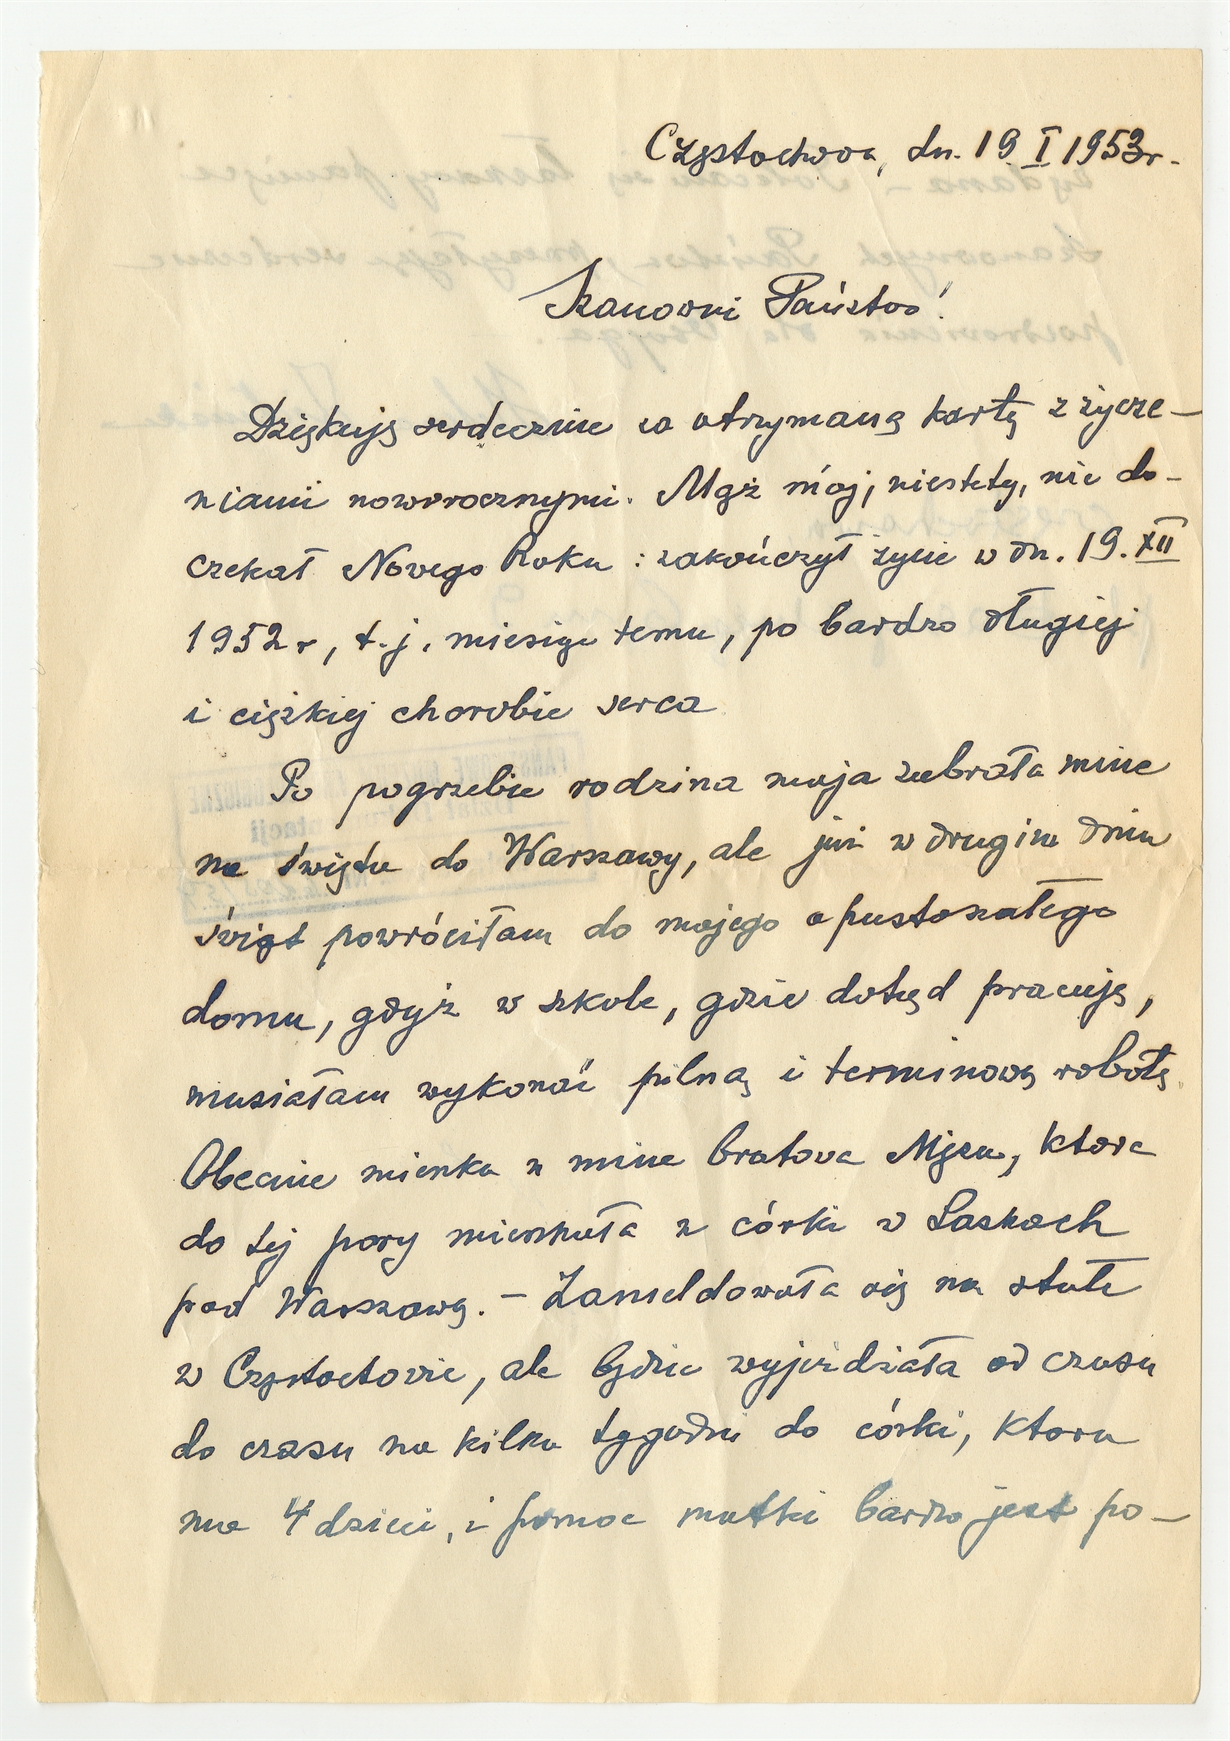 Częstochowa, dn. 19 I 1953r.
Szanowni Państwo!
Dziękuję serdecznie za otrzymaną kartę z życze-
niami noworocznymi. Mąż mój, niestety, nie do-
czekał Nowego Roku : zakończył życie w dn. 19. XII
1952 r, t.j. miesiąc temu, po bardzo długiej
i ciężkiej chorobie serca
Po pogrzebie rodzina moja zabrała mnie
na święta do Warszawy, ale już w drugim dniu
świąt powróciłam do mojego opustoszałego
domu, gdyż w szkole, gdzie dotąd pracuję,
musiałam wykonać pilną i terminową robotę.
Obecnie mieszka u mnie bratowa Męża, która
do tej pory mieszkała u córki w Laskach
pod Warszawą. – Zameldowała się na stałe
w Częstochowie, ale będzie wyjeżdżała od czasu
do czasu na kilka tygodni do córki, która
ma 4 dzieci, i pomoc matki bardzo jest po-